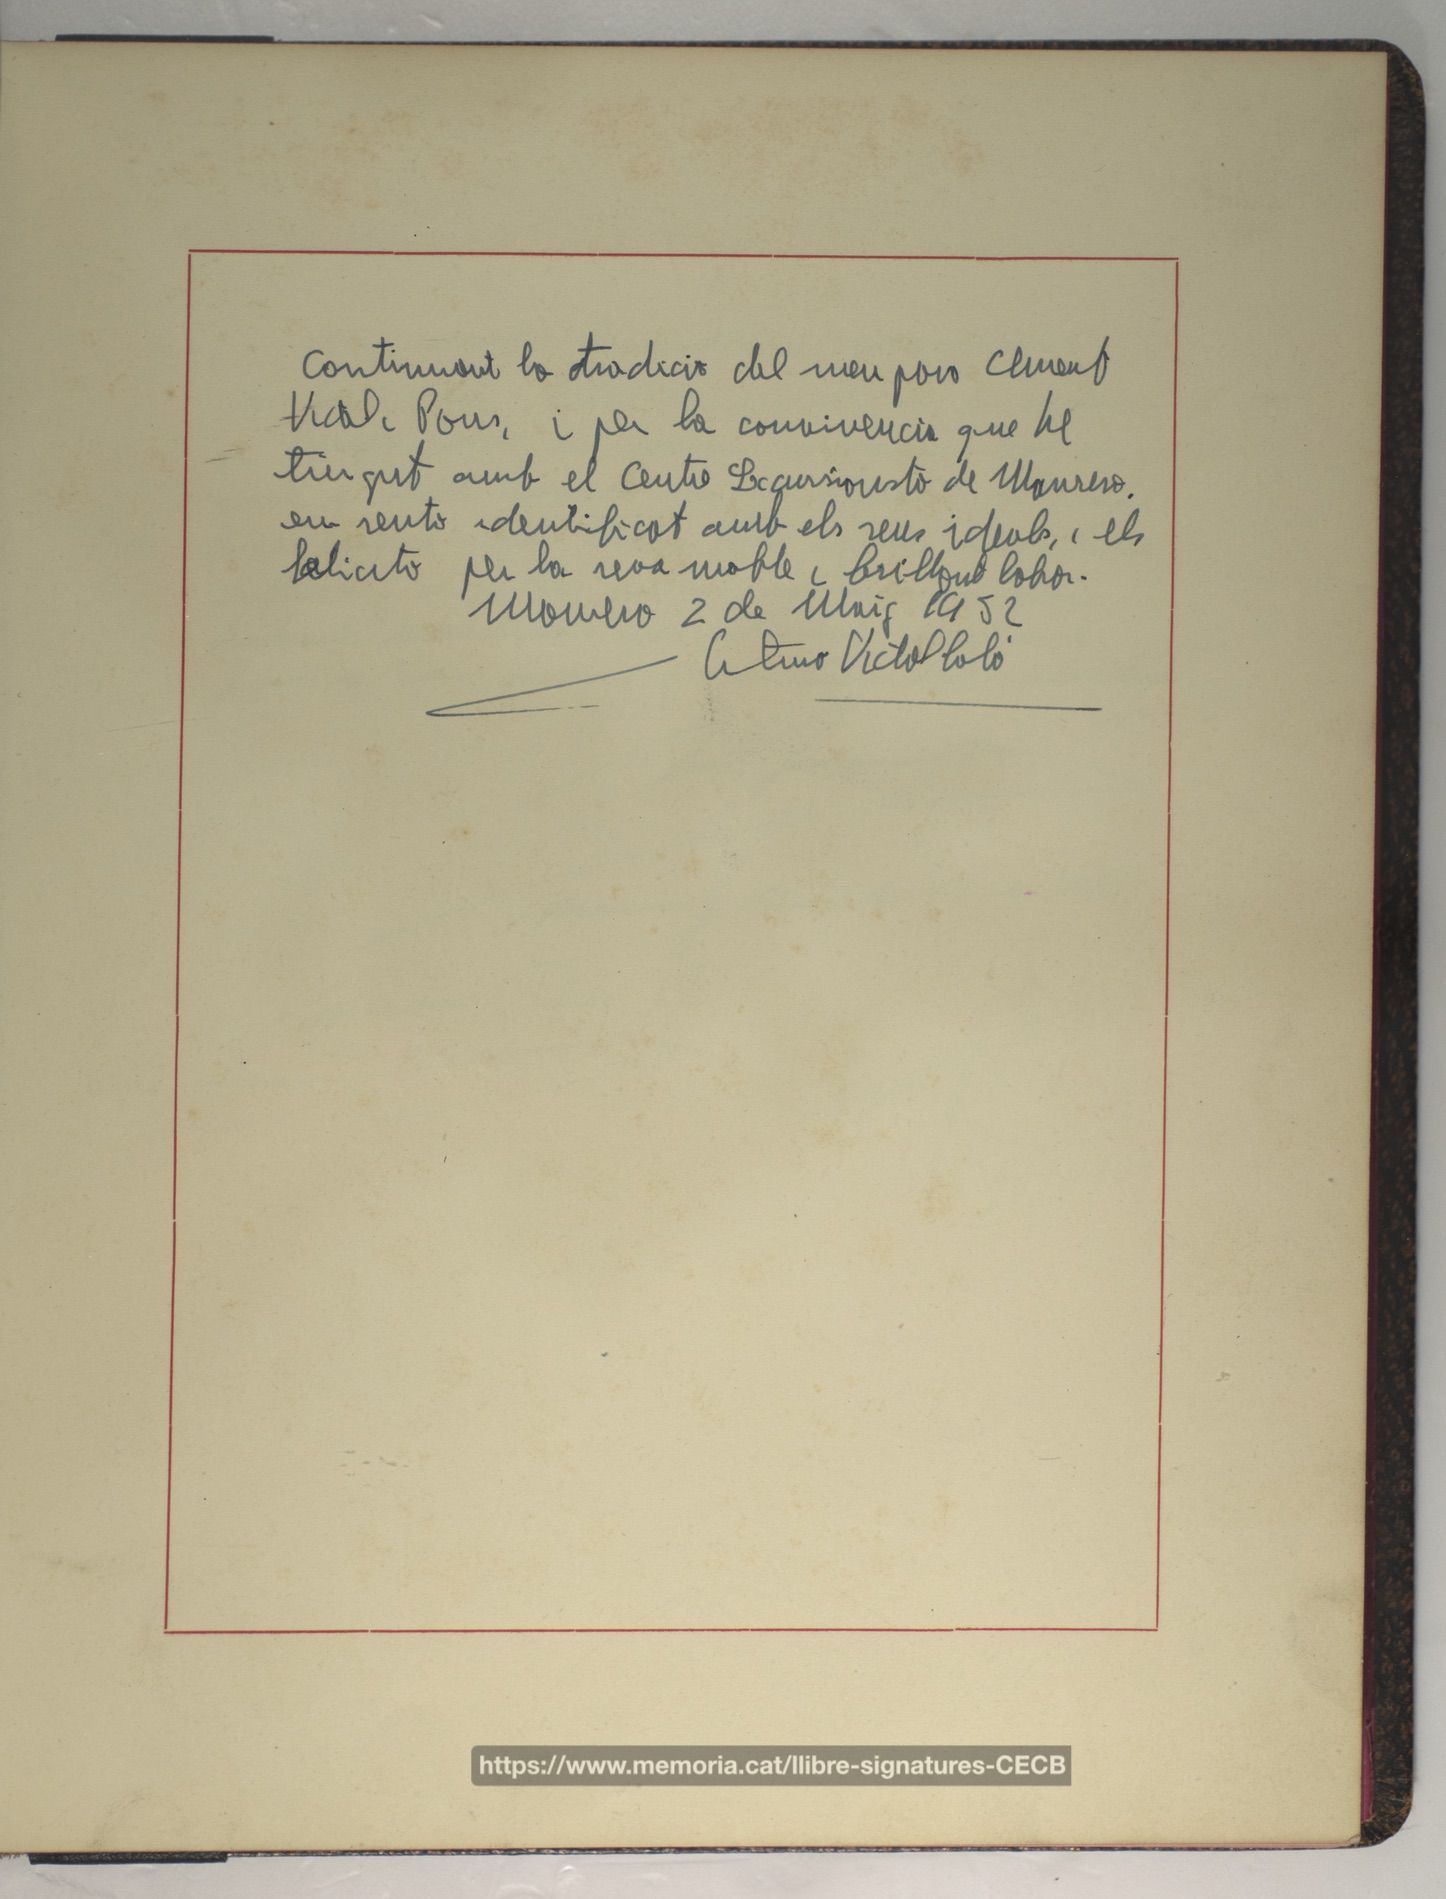 Continuant la tradicio del meu pare Climent
Vidal i Pons, i per la convivencia que he
tingut amb el Centre Excursionista de Manresa.
em sento identificat amb els seus ideals, i els
felicito per la seva noble i brillant labor.
Manresa 2 de Maig 1952
https://www.memoria.cat/llibre-signatures-CECB